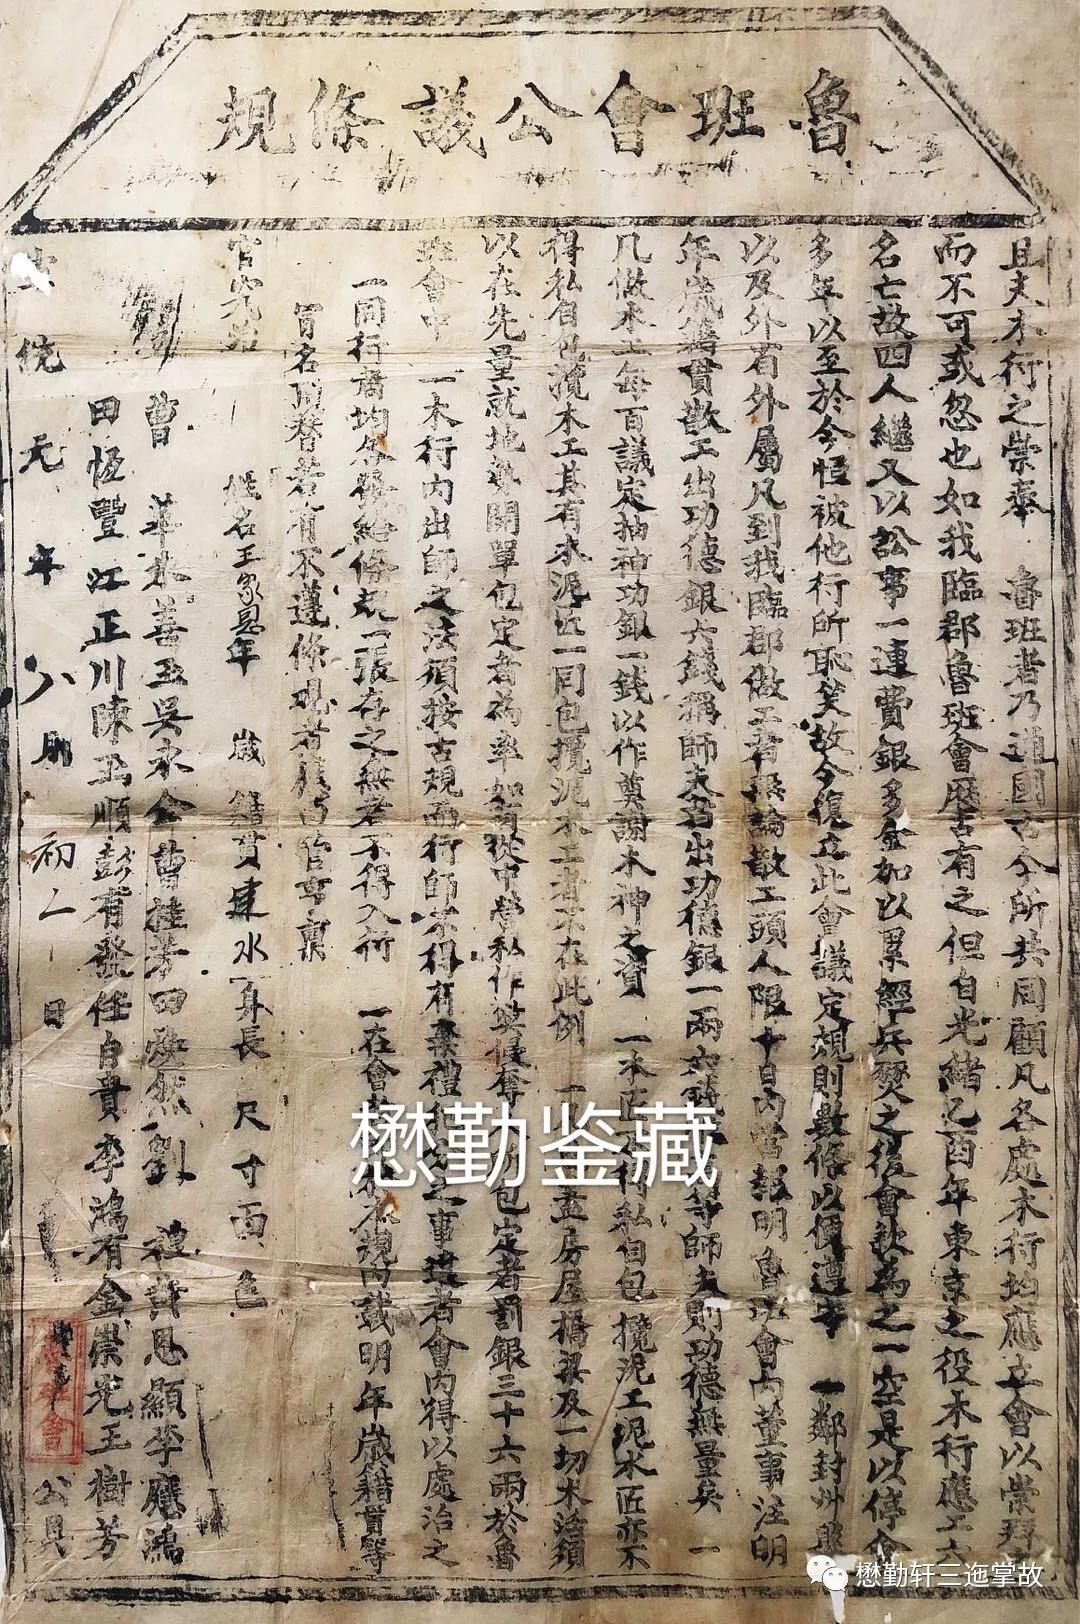 魯班會公議條規
且夫木行之崇奉　魯班者乃通國古今所共同顧凡各處木行均應立會以崇拜
而不可或忽也如我臨郡魯班會歷古有之但自光緒乙酉年東京之役木行應工六
名亡故四人繼又以訟事一連費銀多金加以累經兵燹之後會款為之一空是以停會
多年以至於今恒被他行所恥笑故今復立此會議定規則數條以便遵守　一鄰封州縣
以及外省外屬凡到我臨郡做工者無論散工頭人限十日內當報明魯班會內董事注明
年歲籍貫散工出功德銀六錢稱師夫者出功德銀一兩六錢等師夫則功德無量矣　一
凡做木工每百議定抽神功銀一錢以作奠謝木神之資　一木匠不得私自包攬泥工泥水匠亦不
得私自包攬木工其有水泥匠一同包攬泥木工者不在此例　一蓋房屋橋梁及一切木活須
以在先量就地勢開單包定者為率如有從中營私作弊侵奪包定者罰銀三十六兩於魯
班會中　一木行內出師之法須按古規而行師不得有棄禮之事違者會內得以處治之
一同行者均各發給條規一張存之無者不得入行　一在會條規內載明年歲籍貫等
冒名頂替若有不遵條規者稟
官究治
姓名王家　年　歲　籍貫建水　身長　尺　寸　面　色
曹　善　吳永　曹桂芳　田　然　劉　禮　恩顯　李應鴻
田恆豐　江正川　陳玉順　彭有發　任自貴　李鴻有　金崇光　王樹芳
統元年八月初二日　會　公具
懋勤鉴藏
懋勤轩三迤掌故